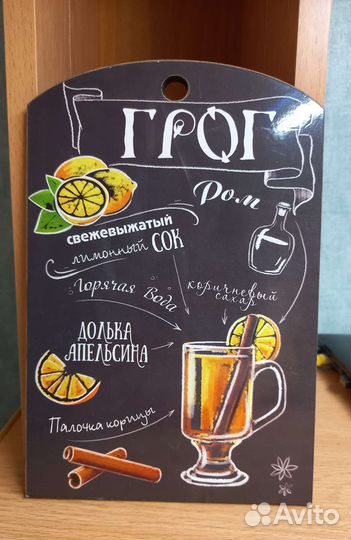 ГРОГ
Ром
свежевыжатый
лимонный СОК
Горячая Вода
коричневый
сахар
ДОЛЬКА
АПЕЛЬСИНА
Палочка корицы
Avito